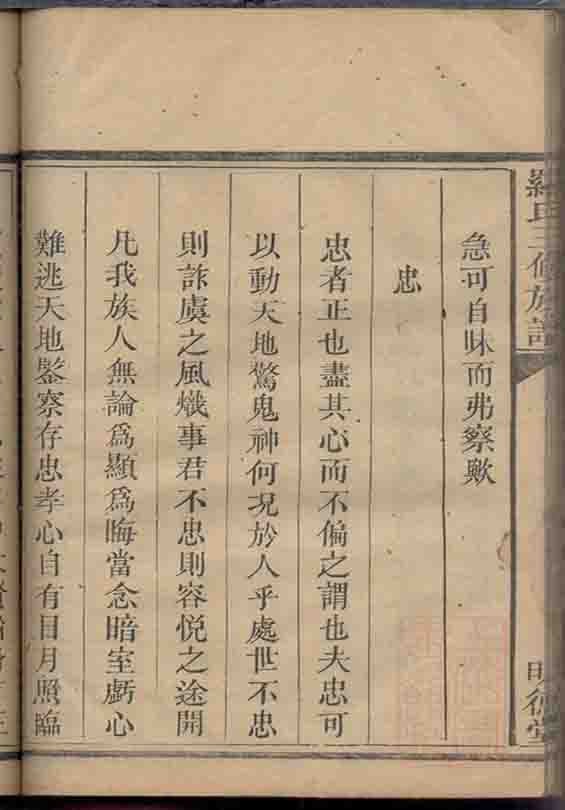 羅氏三修族譜
明德堂
急可自昧而弗察歟
忠
忠者正也盡其心而不偏之謂也夫忠可
以動天地驚鬼神何况於人乎處世不忠
則詐虞之風熾事君不忠則容悅之途開
凡我族人無論爲顯爲晦當念暗室虧心
難逃天地鑒察存忠孝心自有日月照臨